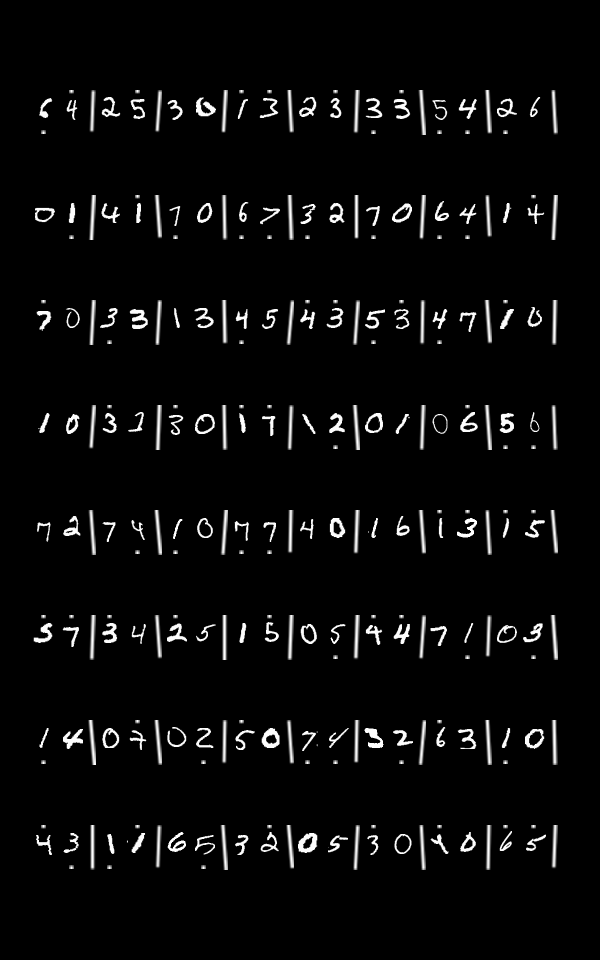 6 4 | 2 5 | 3 0 | 1 3 | 2 3 | 3 3 | 5 4 | 2 6 |
0 1 | 4 1 | 7 0 | 6 7 | 3 2 | 7 0 | 6 4 | 1 4 |
7 0 | 3 3 | 1 3 | 4 5 | 4 3 | 5 3 | 4 7 | 1 0 |
1 0 | 3 2 | 3 0 | 1 7 | 1 2 | 0 1 | 0 6 | 5 6 |
7 2 | 7 4 | 1 0 | 7 7 | 4 0 | 1 6 | 1 3 | 1 5 |
5 7 | 3 4 | 2 5 | 1 5 | 0 5 | 4 4 | 7 1 | 0 3 |
1 4 | 0 7 | 0 2 | 5 0 | 7 4 | 3 2 | 6 3 | 1 0 |
4 3 | 1 1 | 6 5 | 3 2 | 0 5 | 3 0 | 4 0 | 6 5 |